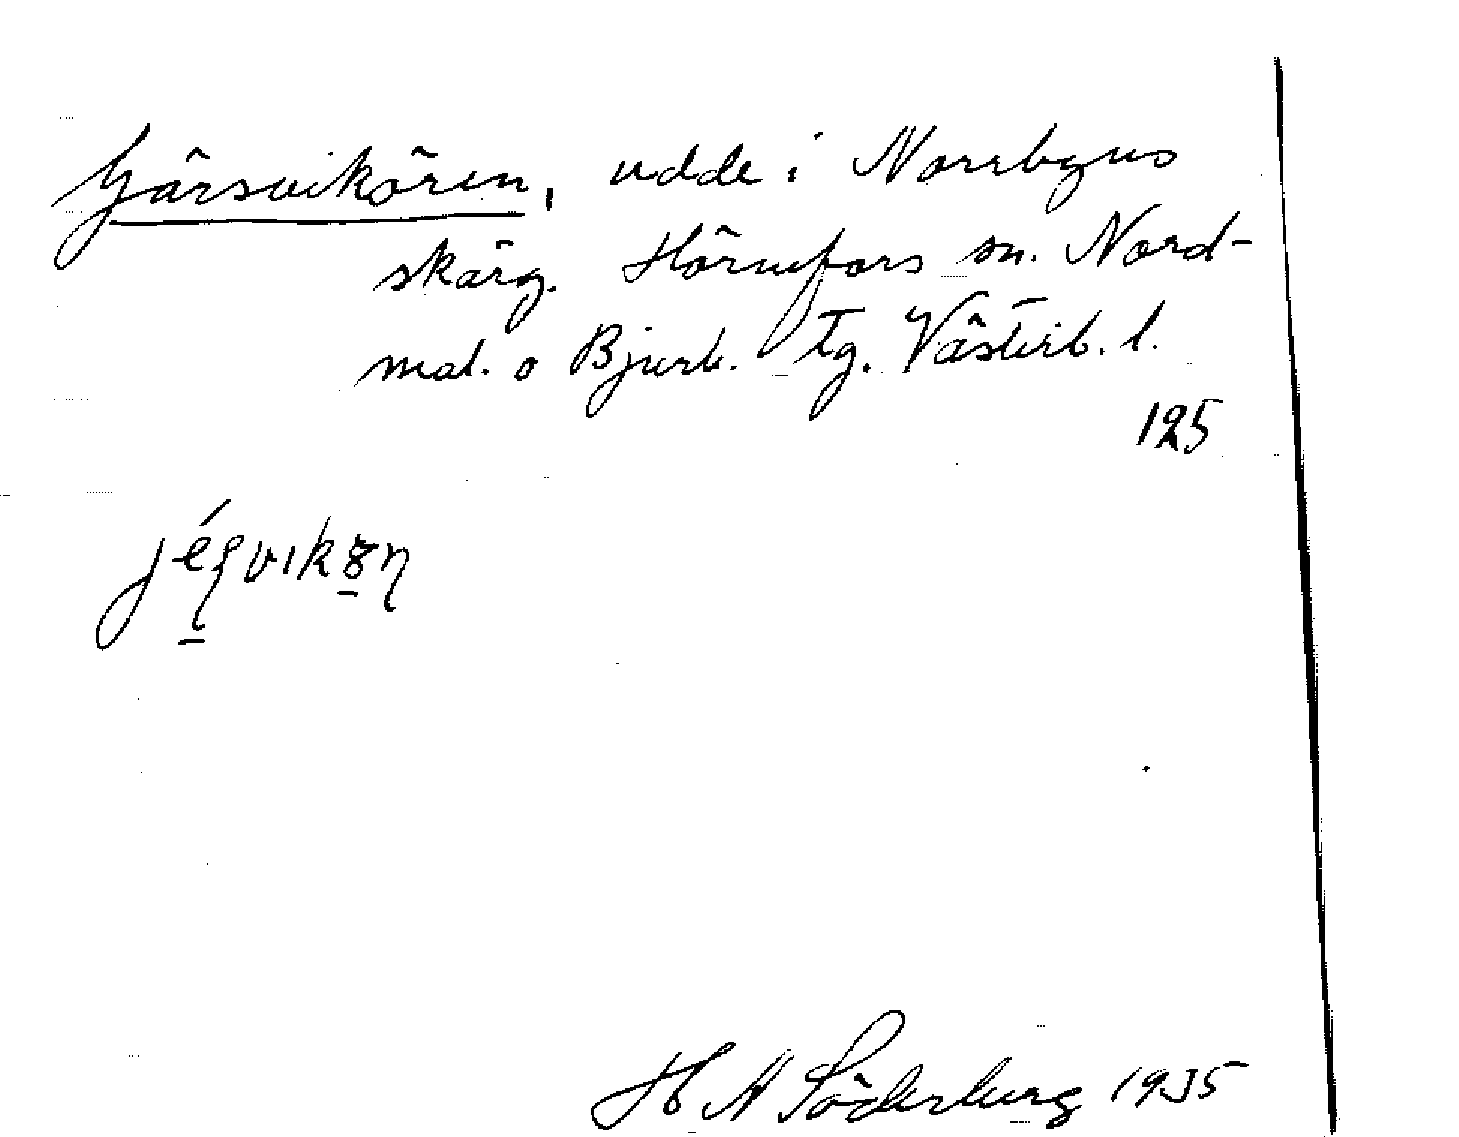 Gärsvikören, udde i Norrbyns
skärg. Hörnefors sn. Nord-
mal. o Bjurh. tg. Västerb. l.
125
jéʂvikȣ̱ɳ
H N Söderberg 1935